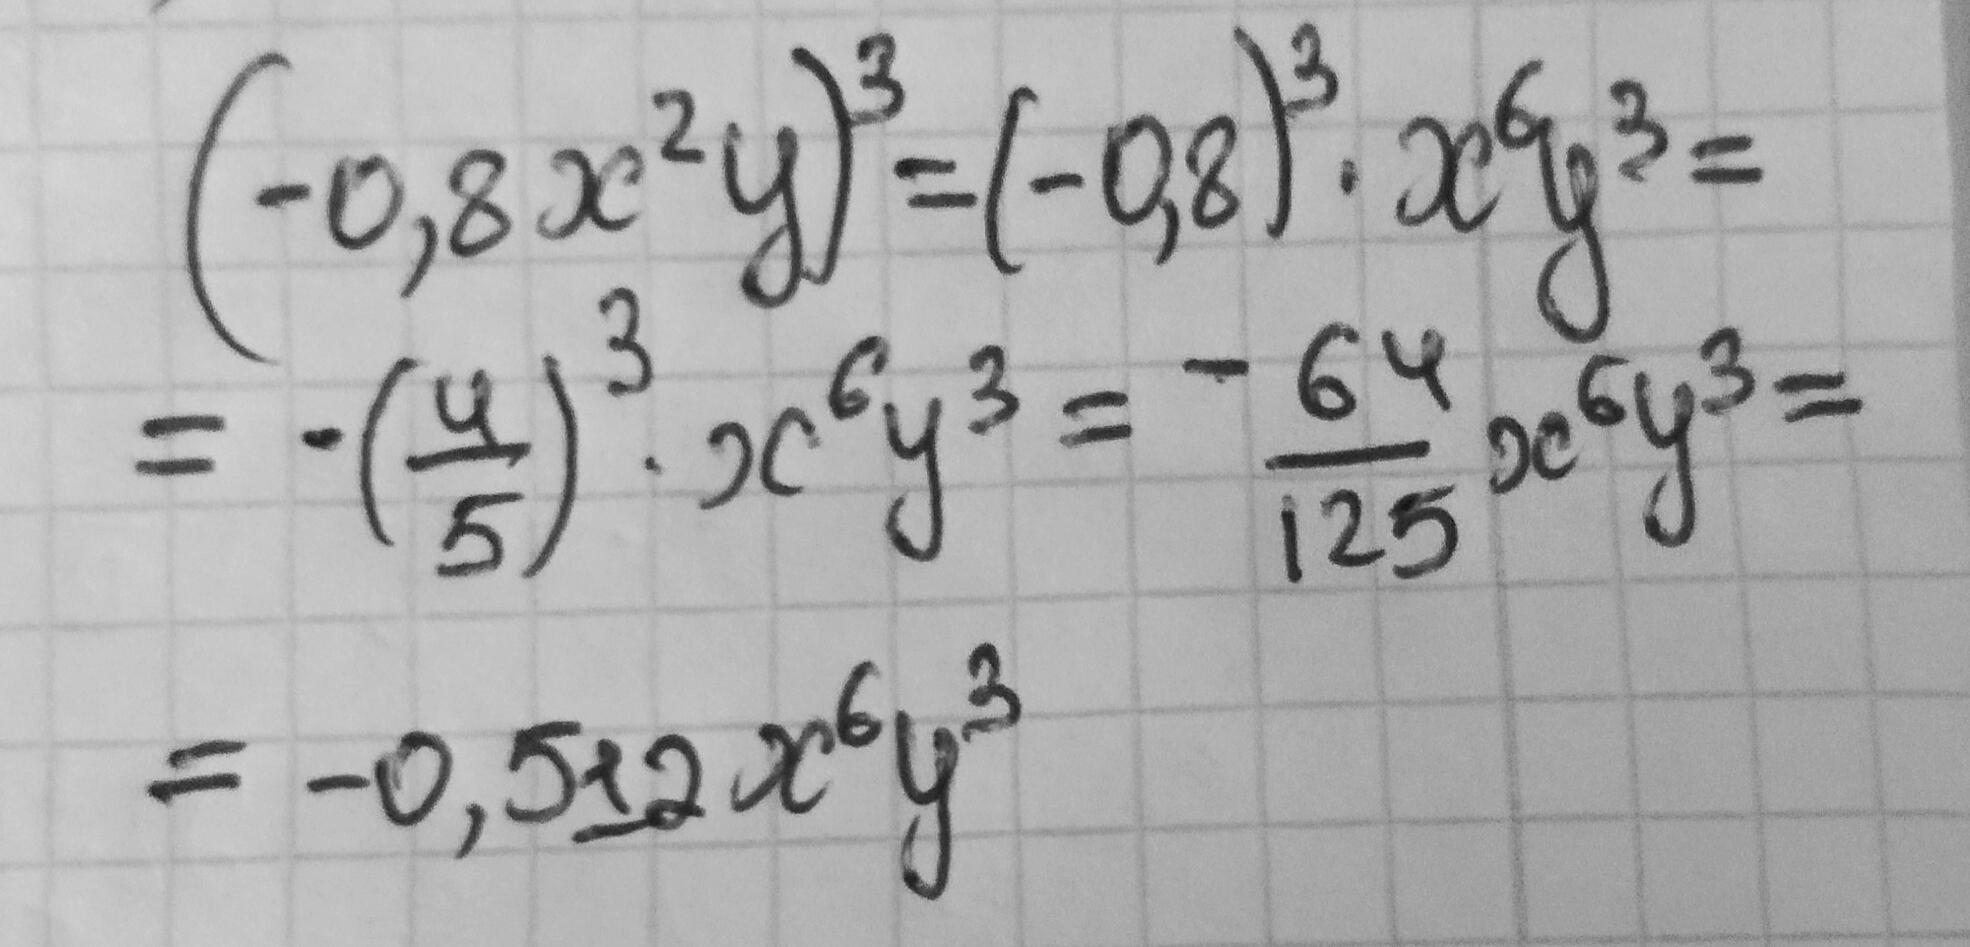 (-0,8x²y)³=(-0,8)³·x⁶y³=
= -(4/5)³·x⁶y³= -64/125 x⁶y³=
= -0,512x⁶y³